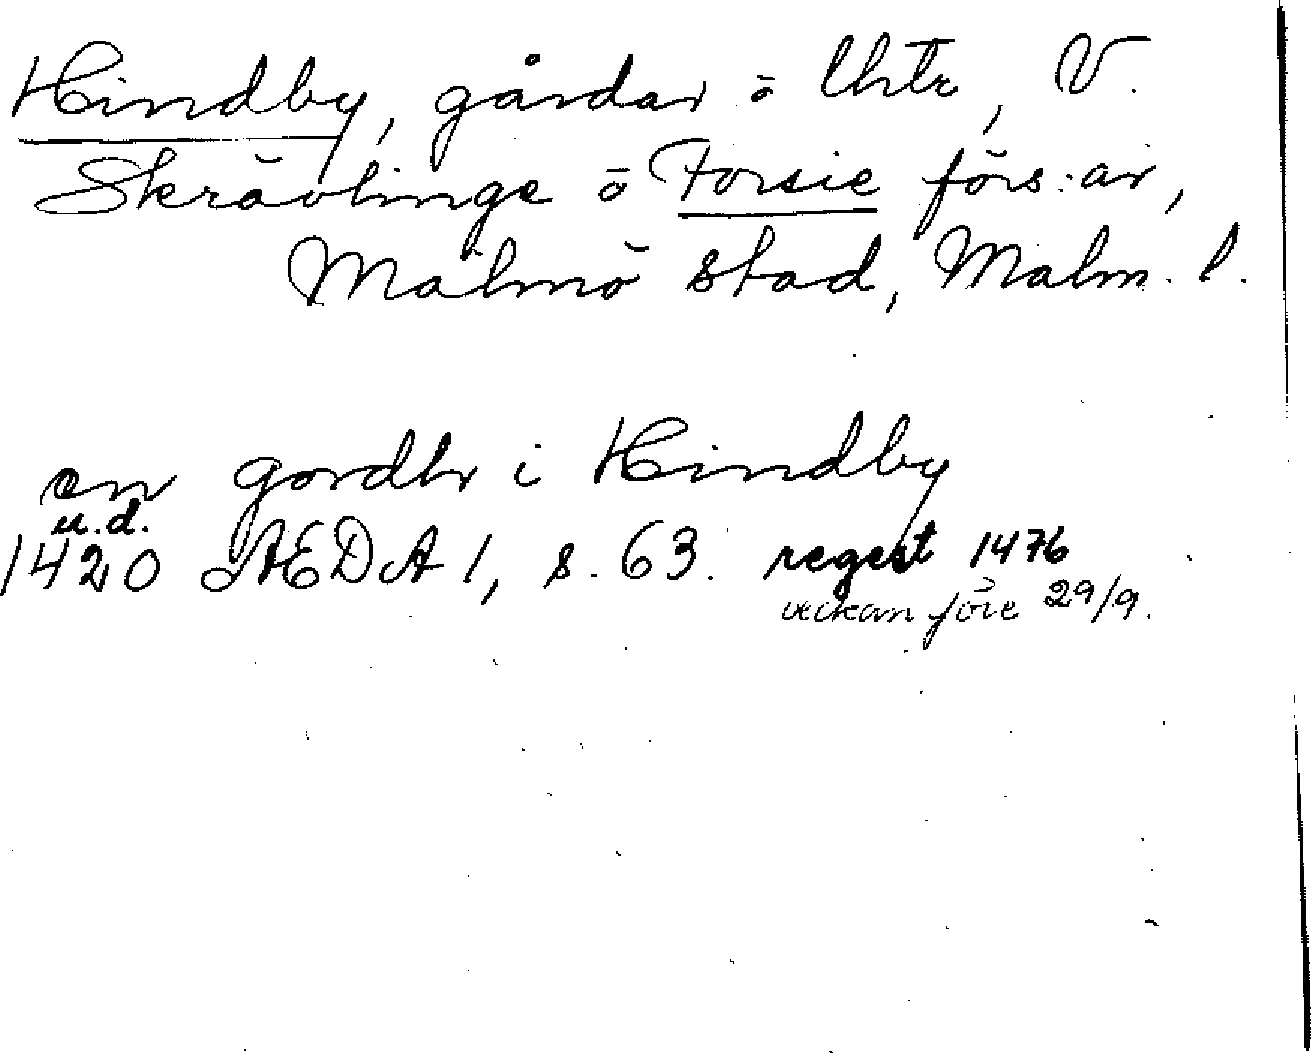 Hindby, gårdar o lhtr, V.
Skrävlinge o Fosie förs:ar,
Malmö stad, Malm. l.
en gordhr i Hindby
u.d.
1420 ÆDA 1, s. 63. regest 1476
veckan före 29/9.